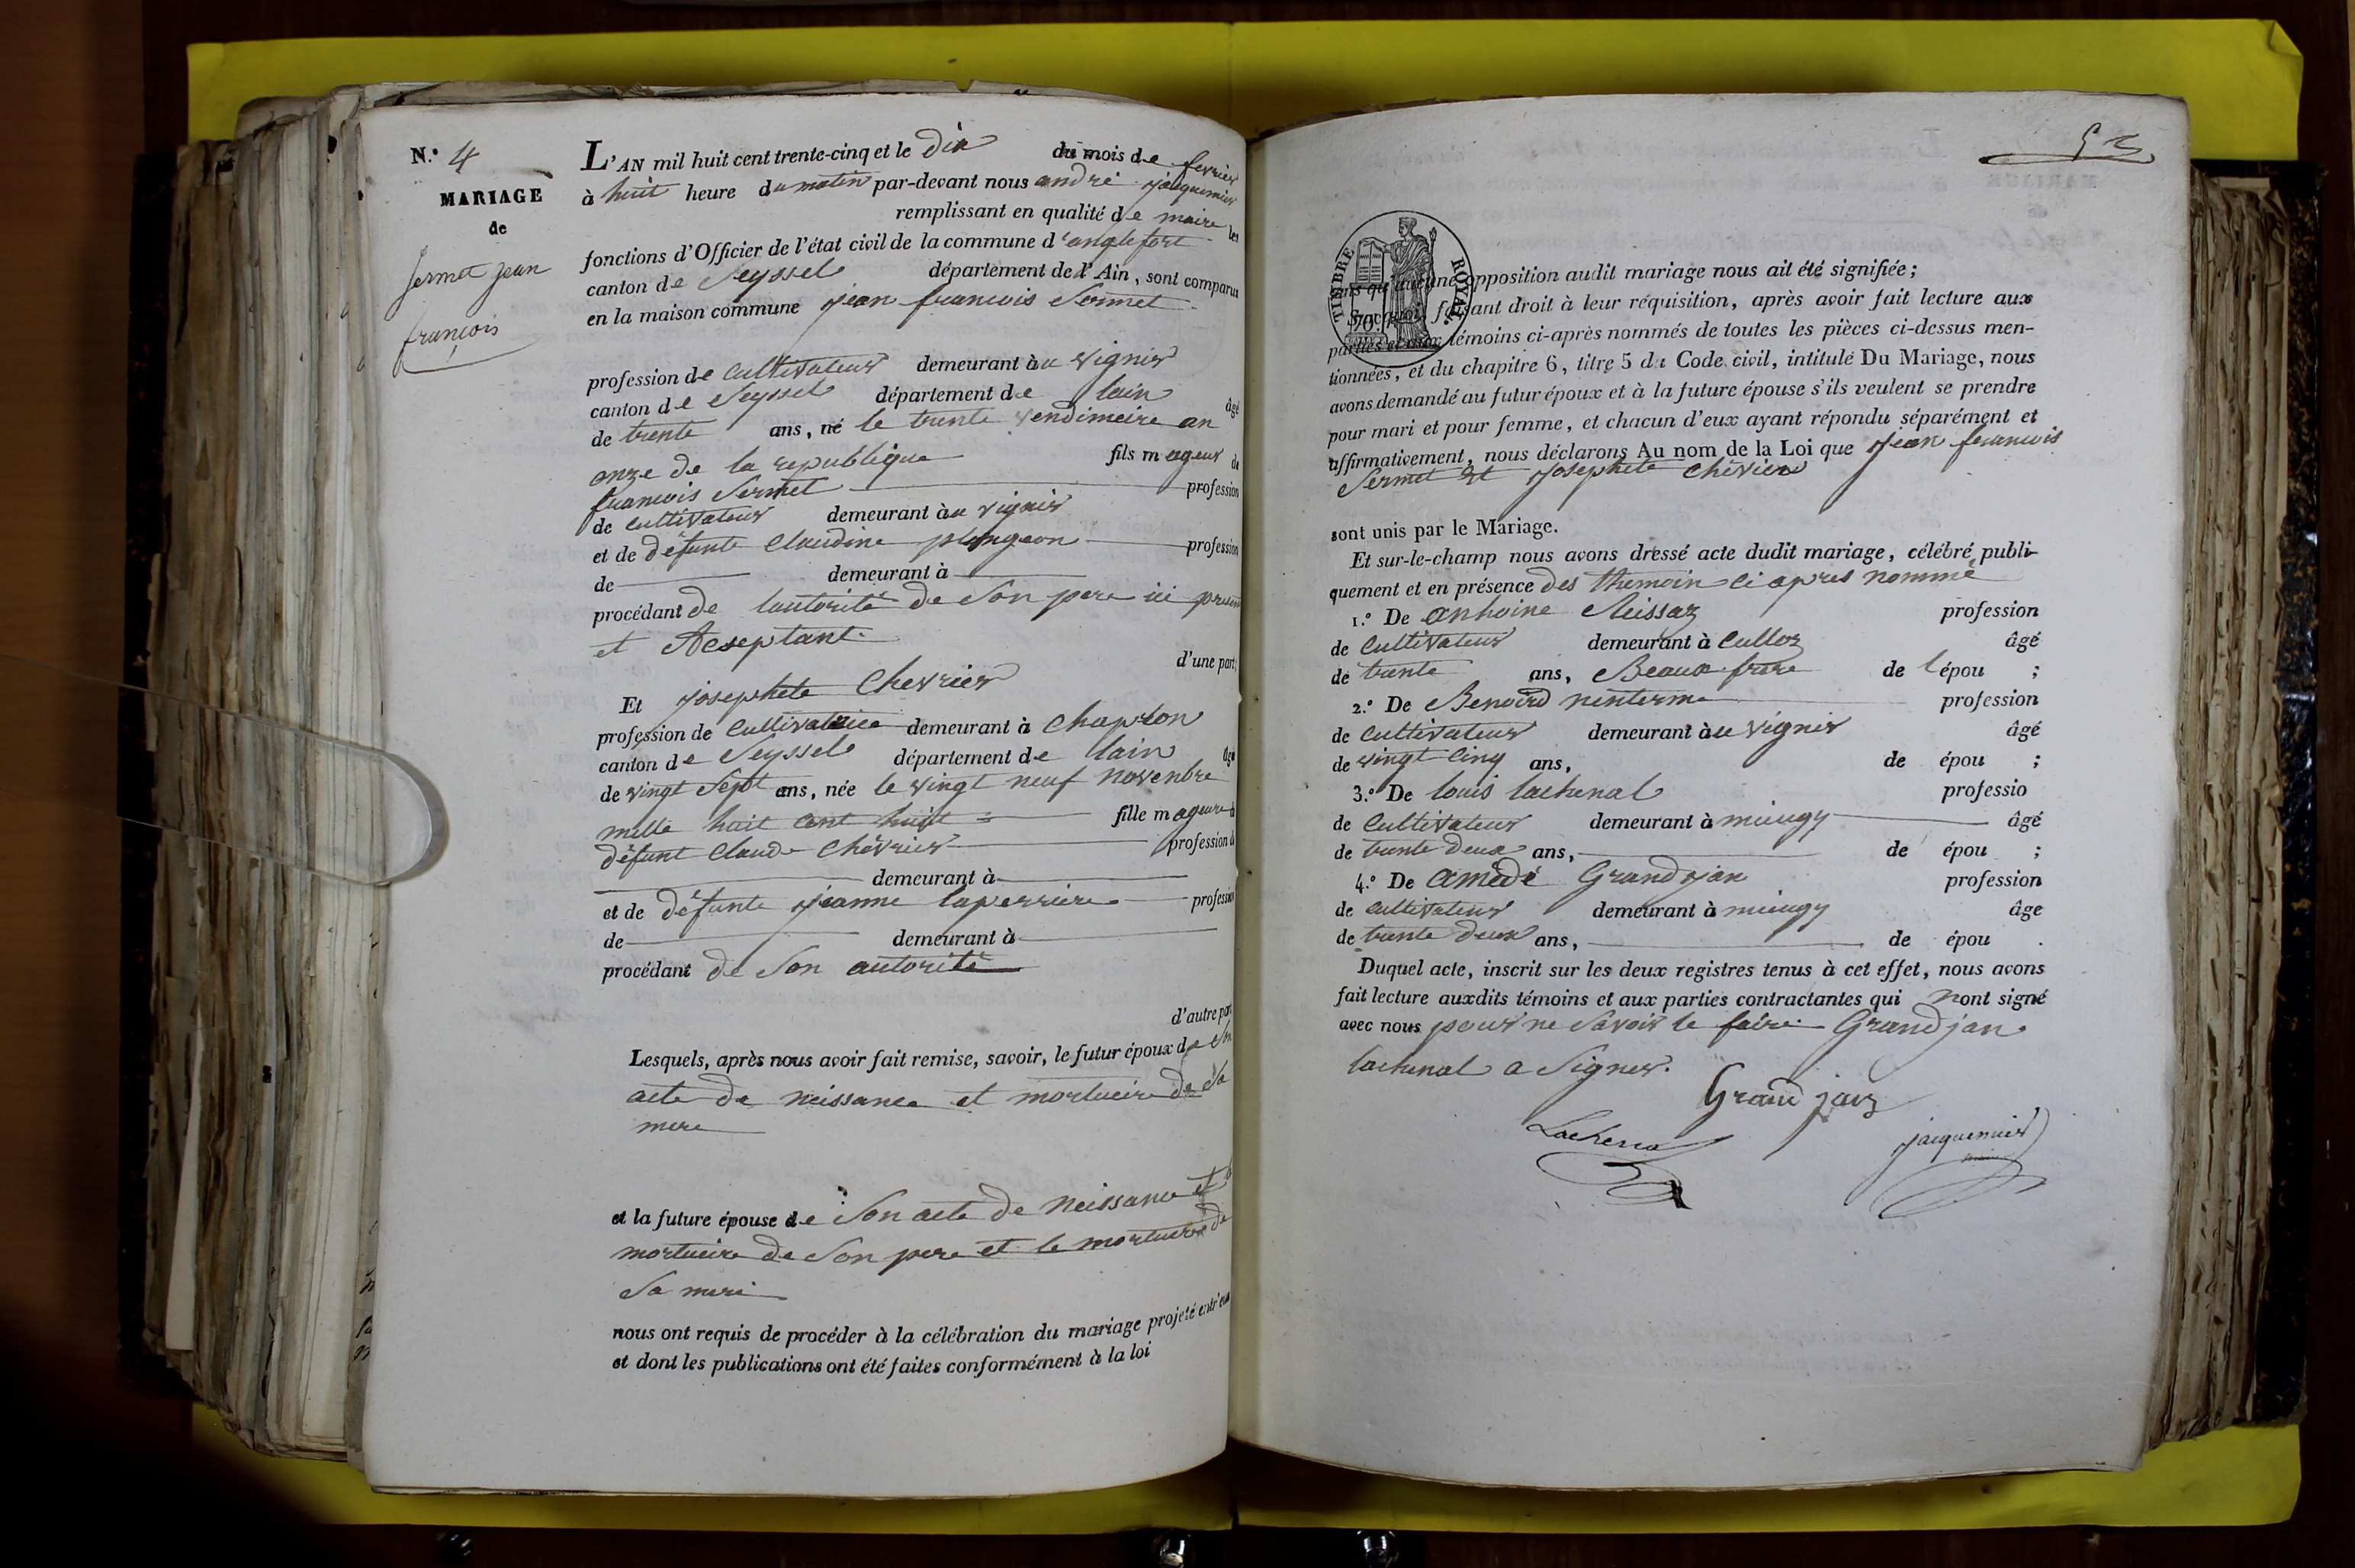 N.º 4
MARIAGE
de
Sermet jean
françois
L'AN mil huit cent trente-cinq et le Dix du mois de fevrier
à huit heure du matin par-devant nous andré jacquemier
remplissant en qualité de maire les
fonctions d'Officier de l'état civil de la commune d'anglefort
canton de Seyssel département de l'Ain, sont comparus
en la maison commune jean francois Sermet
profession de cultivateur demeurant àu vignier
canton de Seyssel département de lain âgé
de trente ans, né le trente vendimeire an
onze de la republique fils mageur de
francois Sermet profession
de cultivateur demeurant àu vignier
et de défunte Claudine plongeon profession
de demeurant à
procédant de lautorité de Son pere ici present
et Aceptant. d'une part;
Et josephete Chevrier
profession de cultivatrice demeurant à Chapton
canton de Seyssel département de lain âgé
de vingt Sept ans, née le vingt neuf novenbre
mille huit cent huit fille mageure d
défunt Claude Chévrier profession d
demeurant à
et de défunte jeanne laperriere profession
de demeurant à
procédant de Son autorité
d'autre part
Lesquels, après nous avoir fait remise, savoir, le futur époux de Son
acte de neissance et mortueire de Sa
mere
et la future épouse de Son acte de neissance et le
mortueire de Son pere et le mortuere de
Sa mere
nous ont requis de procéder à la célébration du mariage projeté entr'eux
et dont les publications ont été faites conformément à la loi
TIMBRE ROYAL
70
sans qu'aucune opposition audit mariage nous ait été signifiée;
Surquoi, faisant droit à leur réquisition, après avoir fait lecture aux
parties et aux témoins ci-après nommés de toutes les pièces ci-dessus men-
tionnées, et du chapitre 6, titre 5 du Code civil, intitulé Du Mariage, nous
avons demandé au futur époux et à la future épouse s'ils veulent se prendre
pour mari et pour femme, et chacun d'eux ayant répondu séparément et
affirmativement, nous déclarons Au nom de la Loi que jean francois
Sermet et josephete chévier
sont unis par le Mariage.
Et sur-le-champ nous avons dressé acte dudit mariage, célébré publi-
quement et en présence des themoin ci apres nommé
1.º De anhoine profession
de cultivateur demeurant à culloz âgé
de trente ans, Beaux frere de l'épou ;
2.º De Benoird profession
de cultivateur demeurant àu vignier âgé
de vingt cinq ans, de épou ;
3.º De louis lachenal professio
de cultivateur demeurant à mieugy âgé
de trente deux ans, de épou ;
4.º De amédé Grandjan profession
de cultivateur demeurant à mieugy âge
de trente deux ans, de épou .
Duquel acte, inscrit sur les deux registres tenus à cet effet, nous avons
fait lecture auxdits témoins et aux parties contractantes qui nont signé
avec nous pour ne Savoir le faire. Grandjan
lachenal a Signer.
Grand jan
Lachena jacquemier
maire